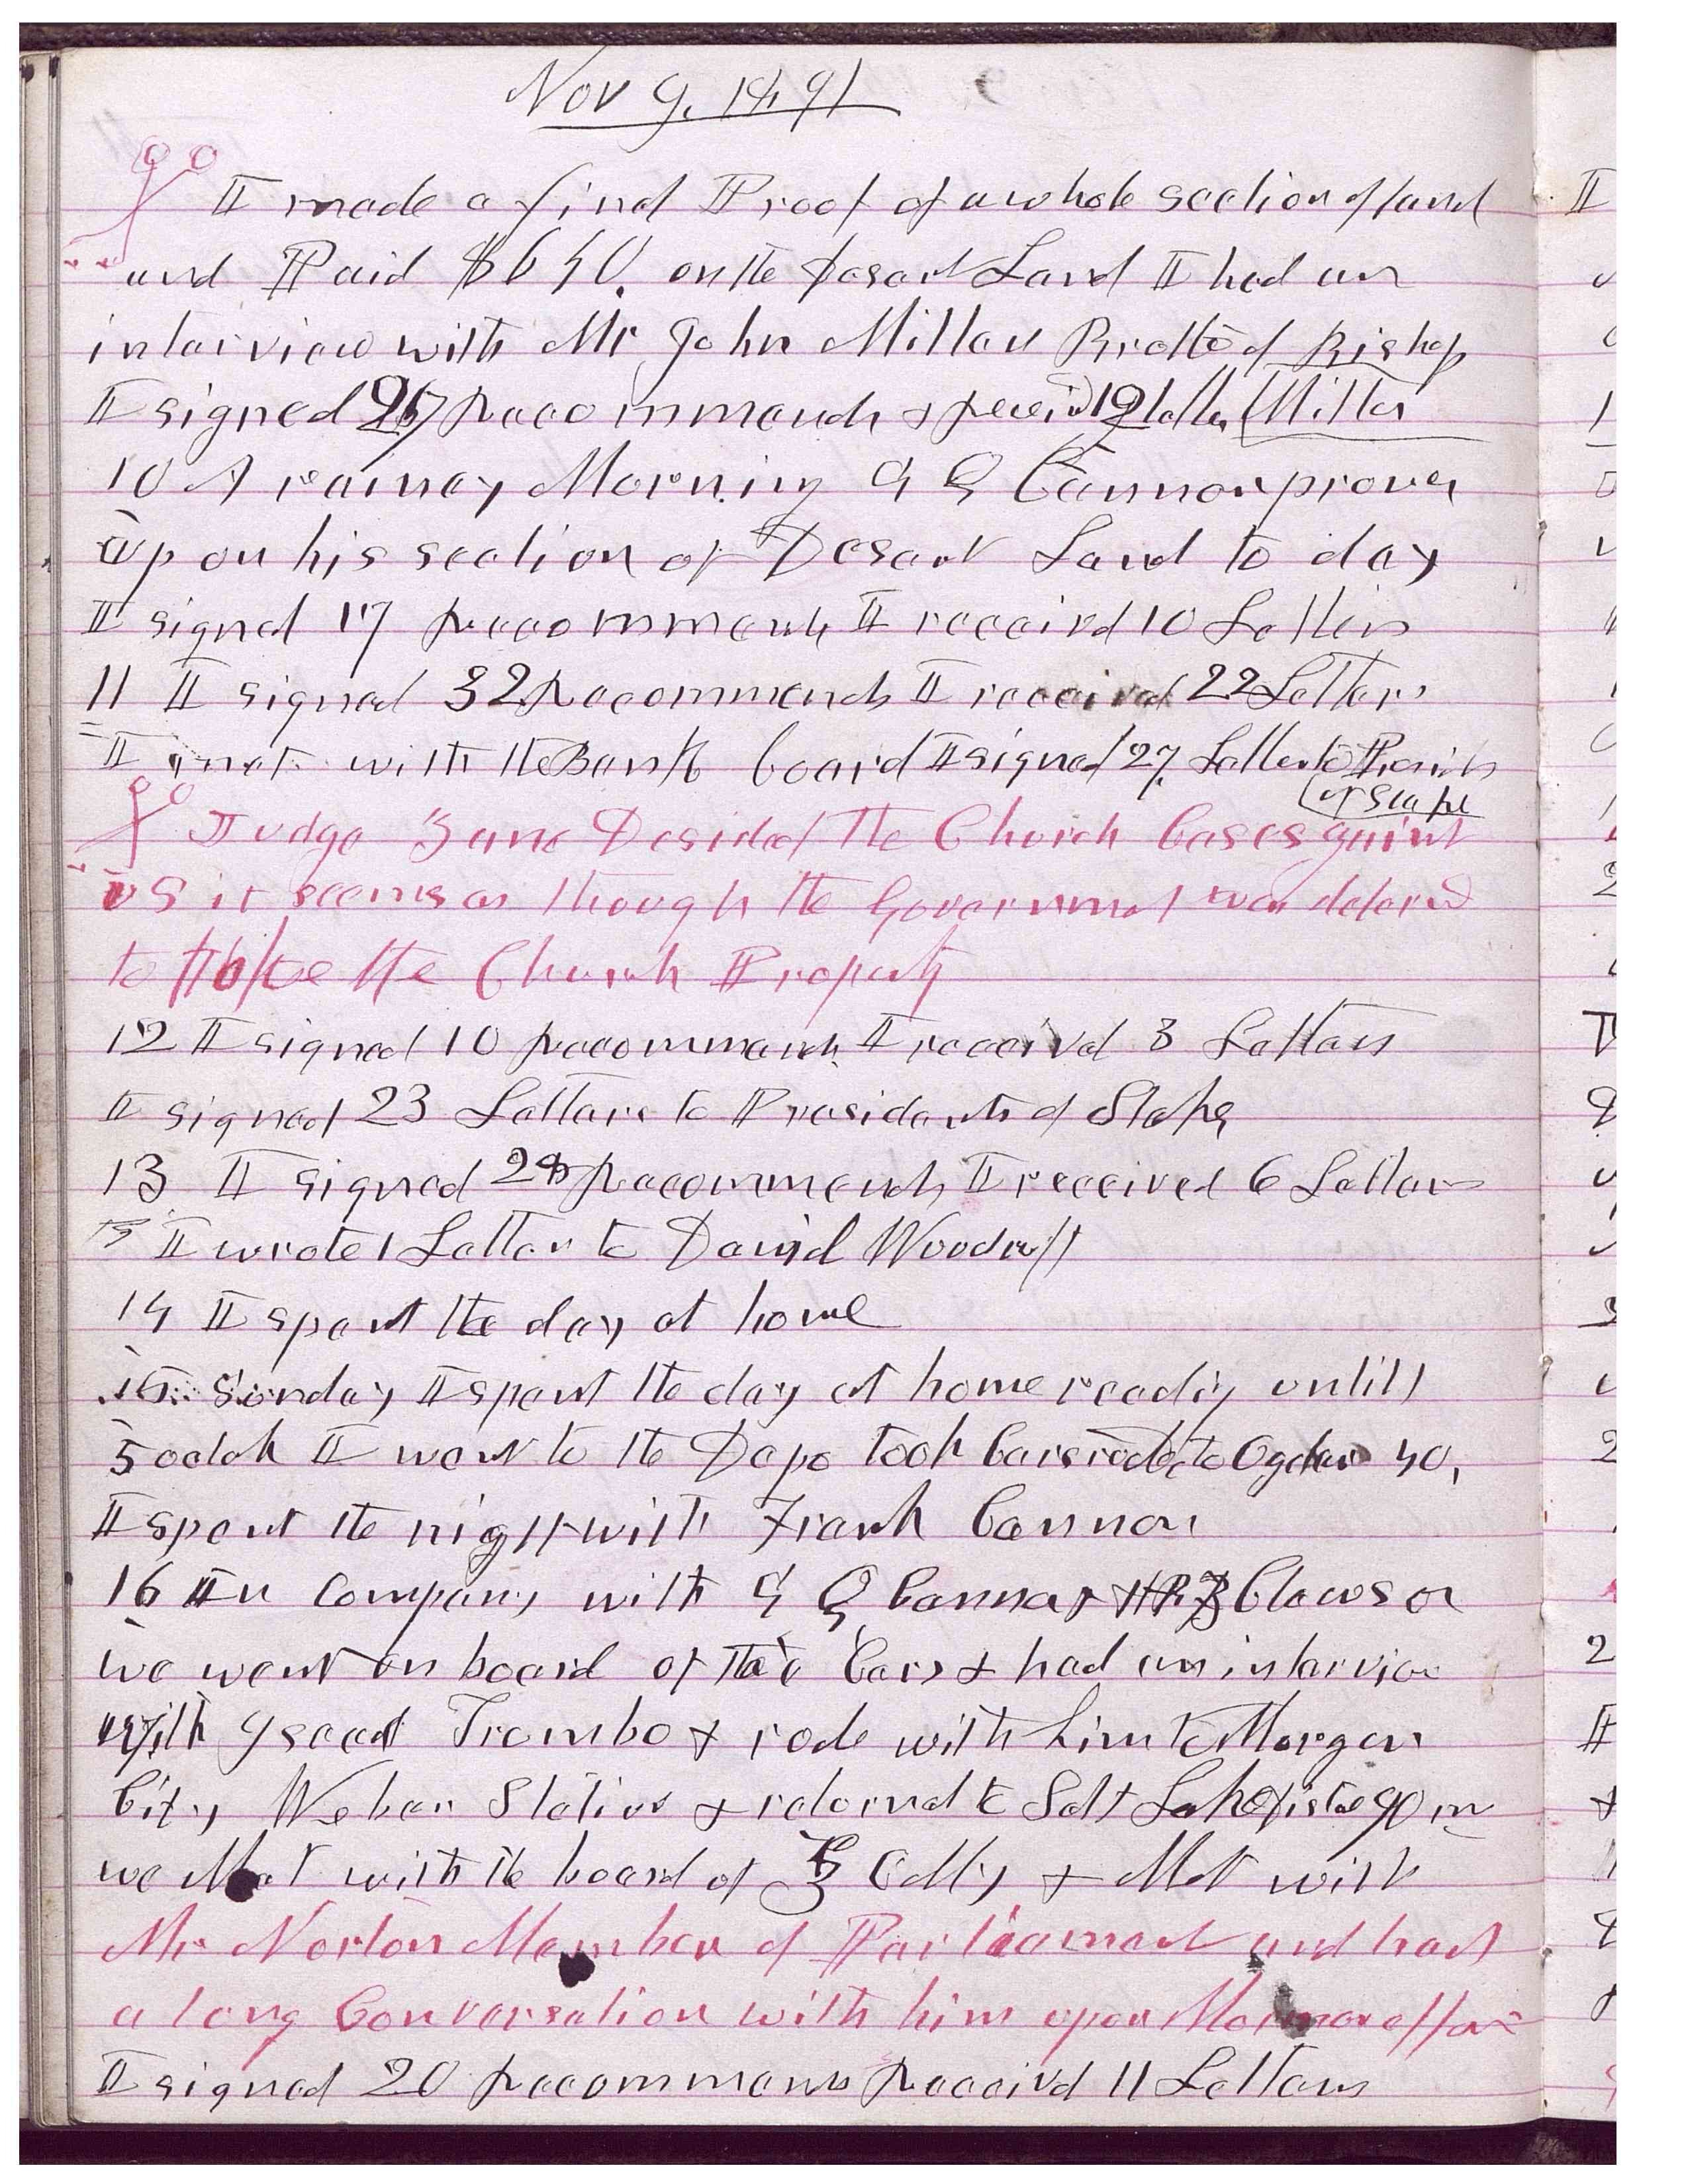 Nov 9, 1891
I made a final Proof of a whole section of land
and Paid $640. on the Desart Land I had an
interview with Mr John Miller Brother of Bishop
I signed Recommends & Receivd 12 letters (Miller
10 A rainey Morning G Q Cannon proves
up on his section of Desart Land to day
I signed 17 Recommends I received 10 Letters
11 I signed 32 Recommends I received 22 Letters
I met with the Bank board I signed 27 Letters to Presidents
(of Stake
Judge Zane Desided the Church Cases against
us it seems as though the Government was determined
to the Church Property
12 I signed 10 Recommends I received 3 Letters
I signed 23 Letters to Presidents of Stakes
13 I signed 28 Recommends I received 6 Letters
I wrote 1 Letter to David Woodruff
14 I spent the day at home
15 Sunday I spent the day at home reading untill
5 oclok I went to the Depo took Cars rode to Ogden 40,
I spent the night with Frank Cannon
16 In Company with G Q Cannon & H B Clawson
we went on board of the Cars & had an interview
with Isaac Trumbo & rode with him to Morgan
City Weber Station & returned to Salt Lake distance 90 m
we Met with the board of Z C M I & Met with
Mr Norton Member of Parliament and had
a long Conversation with him upon Mormon affairs
I signed 20 Recommends Receivd 11 Letters